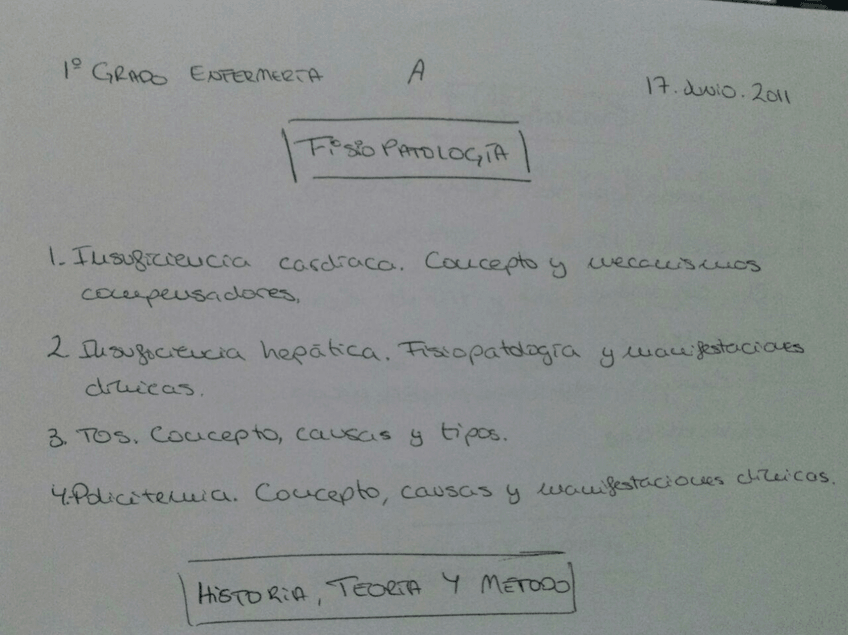 1º GRADO ENFERMERÍA A 17. Junio. 2011
FISIOPATOLOGÍA
1. Insuficiencia cardíaca. Concepto y mecanismos
compensadores.
2. Insuficiencia hepática. Fisiopatología y manifestaciones
clínicas.
3. TOS. Concepto, causas y tipos.
4. Policitemia. Concepto, causas y manifestaciones clínicas.
HISTORIA, TEORÍA Y METODO